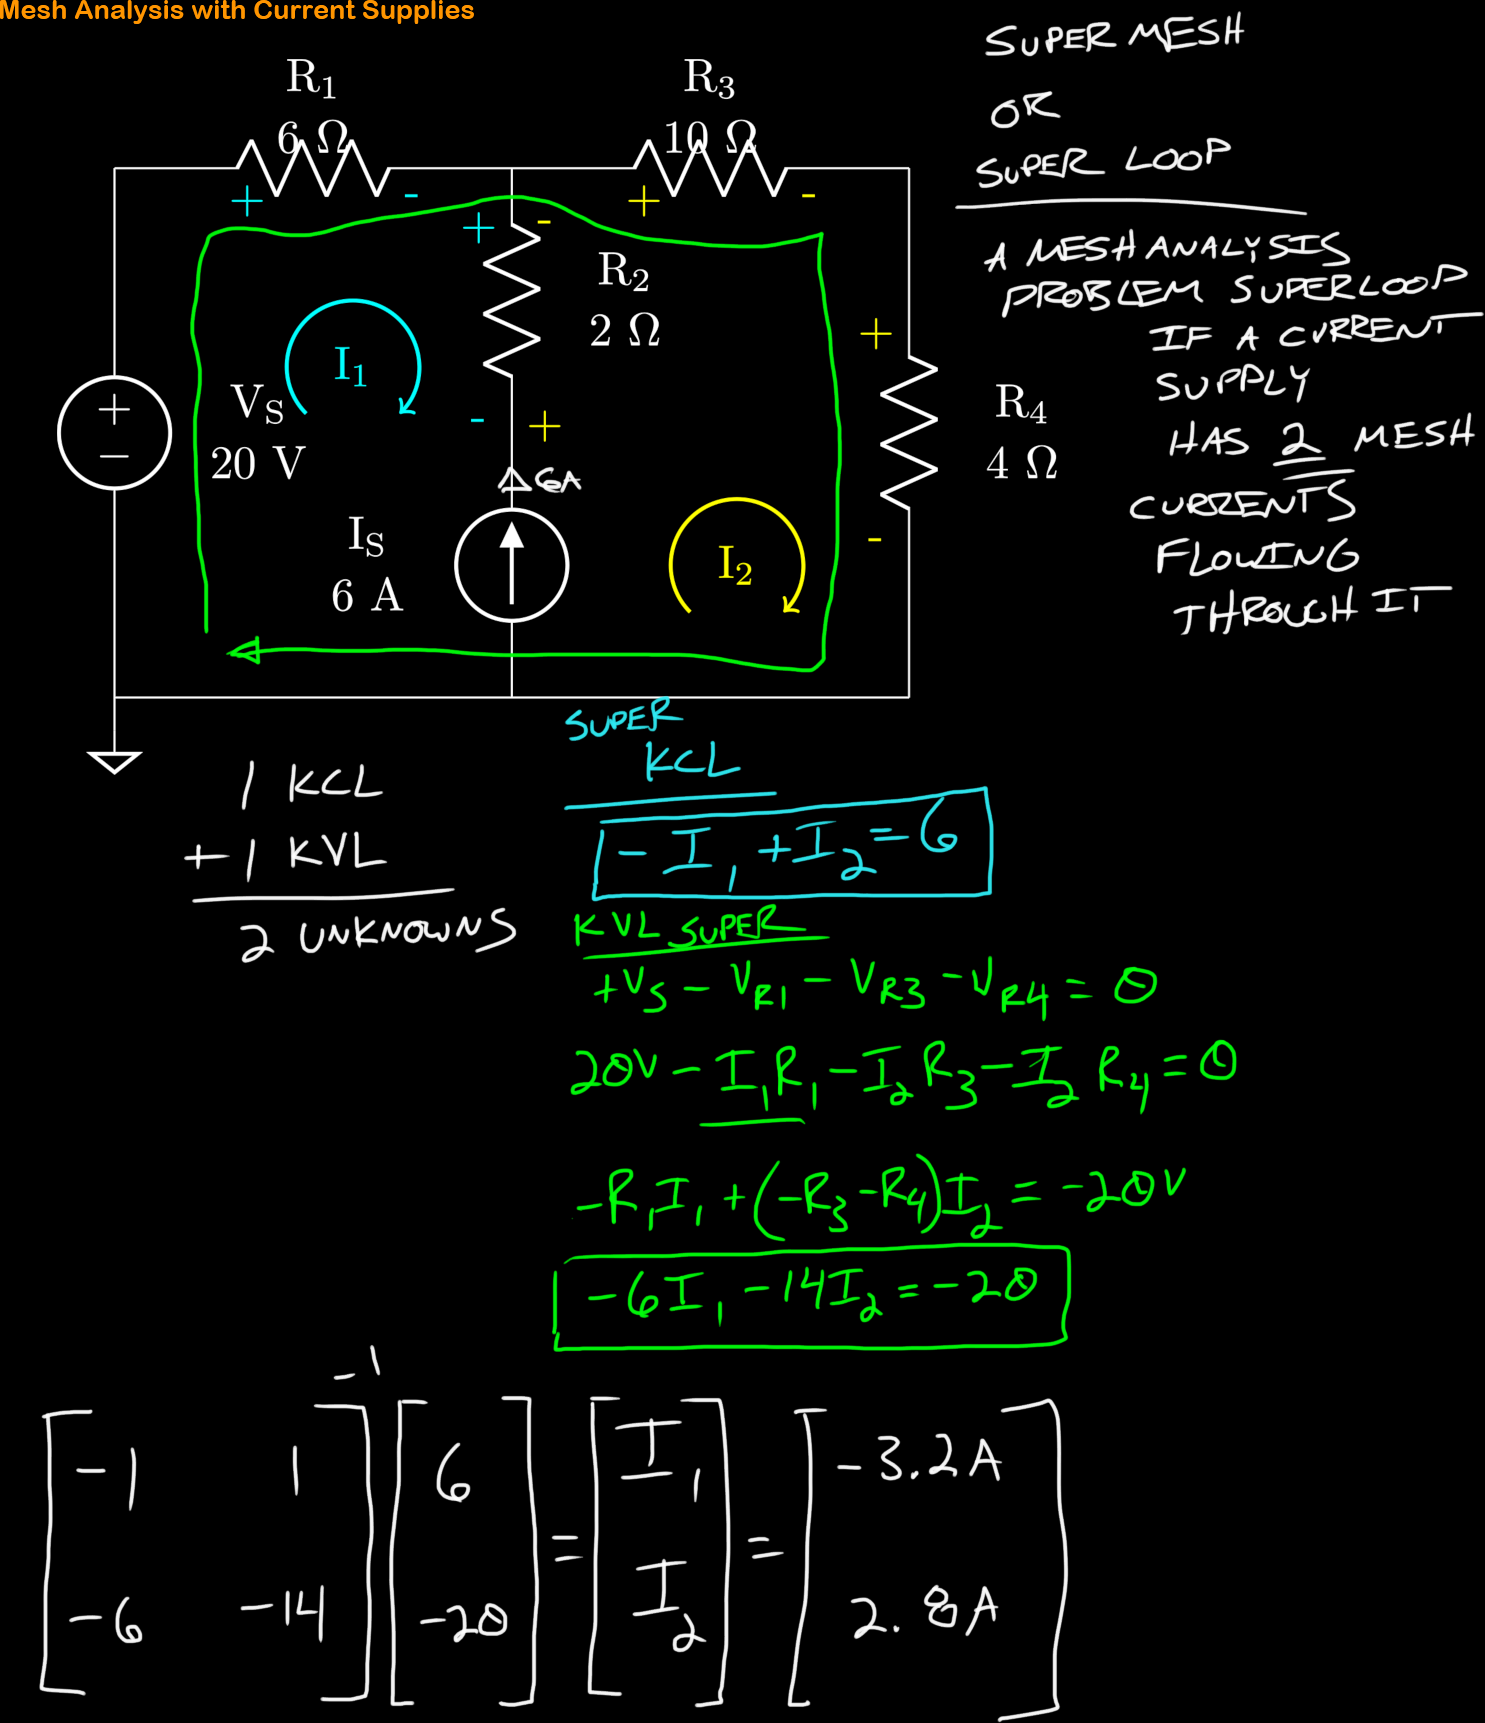 Mesh Analysis with Current Supplies
R₁
6 Ω
R₃
10 Ω
+ - + -
+ -
R₂
2 Ω
I₁
- +
6A
V_S
20 V
+
−
I_S
6 A
I₂
+
R₄
4 Ω
-
SUPER MESH
OR
SUPER LOOP
A MESH ANALYSIS
PROBLEM SUPERLOOP
IF A CURRENT
SUPPLY
HAS 2 MESH
CURRENTS
FLOWING
THROUGH IT
1 KCL
+ 1 KVL
2 UNKNOWNS
SUPER
KCL
- I₁ + I₂ = 6
KVL SUPER
+V_S - V_R1 - V_R3 - V_R4 = 0
20V - I₁R₁ - I₂R₃ - I₂R₄ = 0
-R₁I₁ + (-R₃ - R₄)I₂ = -20V
-6I₁ - 14I₂ = -20
-1
[-1 1] [6] = [I₁] = [-3.2A]
[-6 -14] [-20] [I₂] [2.8A]